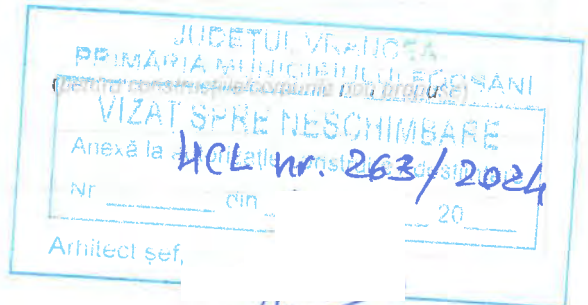 JUDEȚUL VRANCEA
PRIMĂRIA MUNICIPIULUI FOCȘANI
(pentru construcțiile/corpurile nou propuse)
VIZAT SPRE NESCHIMBARE
Anexă la autorizație construire/desființare
HCL nr. 263/2024
Nr din 20
Arhitect șef,